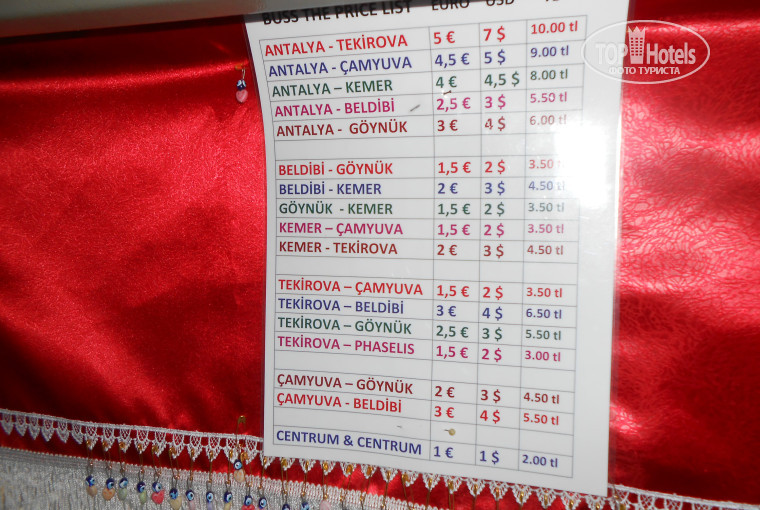 BUSS THE PRICE LIST EURO USD
ANTALYA - TEKİROVA 5 € 7 $ 10.00 tl
ANTALYA - ÇAMYUVA 4,5 € 5 $ 9.00 tl
ANTALYA – KEMER 4 € 4,5 $ 8.00 tl
ANTALYA – BELDİBİ 2,5 € 3 $ 5.50 tl
ANTALYA - GÖYNÜK 3 € 4 $ 6.00 tl
BELDİBİ - GÖYNÜK 1,5 € 2 $ 3.50
BELDİBİ - KEMER 2 € 3 $ 4.50 tl
GÖYNÜK - KEMER 1,5 € 2 $ 3.50 tl
KEMER – ÇAMYUVA 1,5 € 2 $ 3.50 tl
KEMER – TEKİROVA 2 € 3 $ 4.50 tl
TEKİROVA – ÇAMYUVA 1,5 € 2 $ 3.50 tl
TEKİROVA – BELDİBİ 3 € 4 $ 6.50 tl
TEKİROVA – GÖYNÜK 2,5 € 3 $ 5.50 tl
TEKİROVA – PHASELIS 1,5 € 2 $ 3.00 tl
ÇAMYUVA – GÖYNÜK 2 € 3 $ 4.50 tl
ÇAMYUVA - BELDİBİ 3 € 4 $ 5.50 tl
CENTRUM & CENTRUM 1 € 1 $ 2.00 tl
TopHotels
ФОТО ТУРИСТА